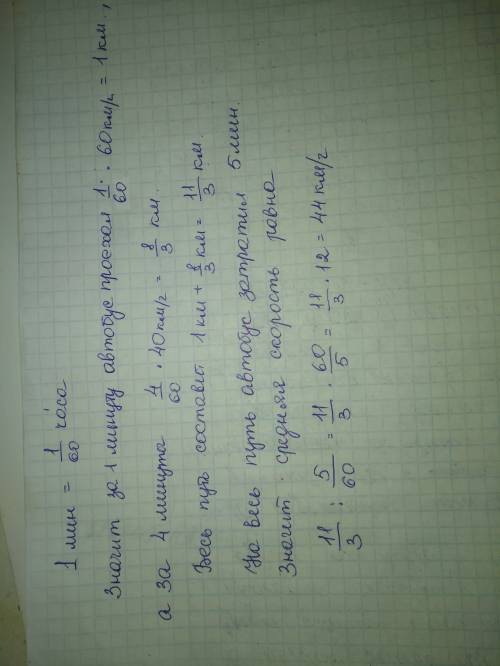 1 мин = 1/60 часа
Значит за 1 минуту автобус проехал 1/60 · 60 км/ч = 1 км.,
а за 4 минуты 4/60 · 40 км/г = 8/3 км.
Весь путь составит 1 км + 8/3 км = 11/3 км.
На весь путь автобус затратил 5 мин.
Значит средняя скорость равна
11/3 : 5/60 = 11/3 · 60/5 = 11/3 · 12 = 44 км/г